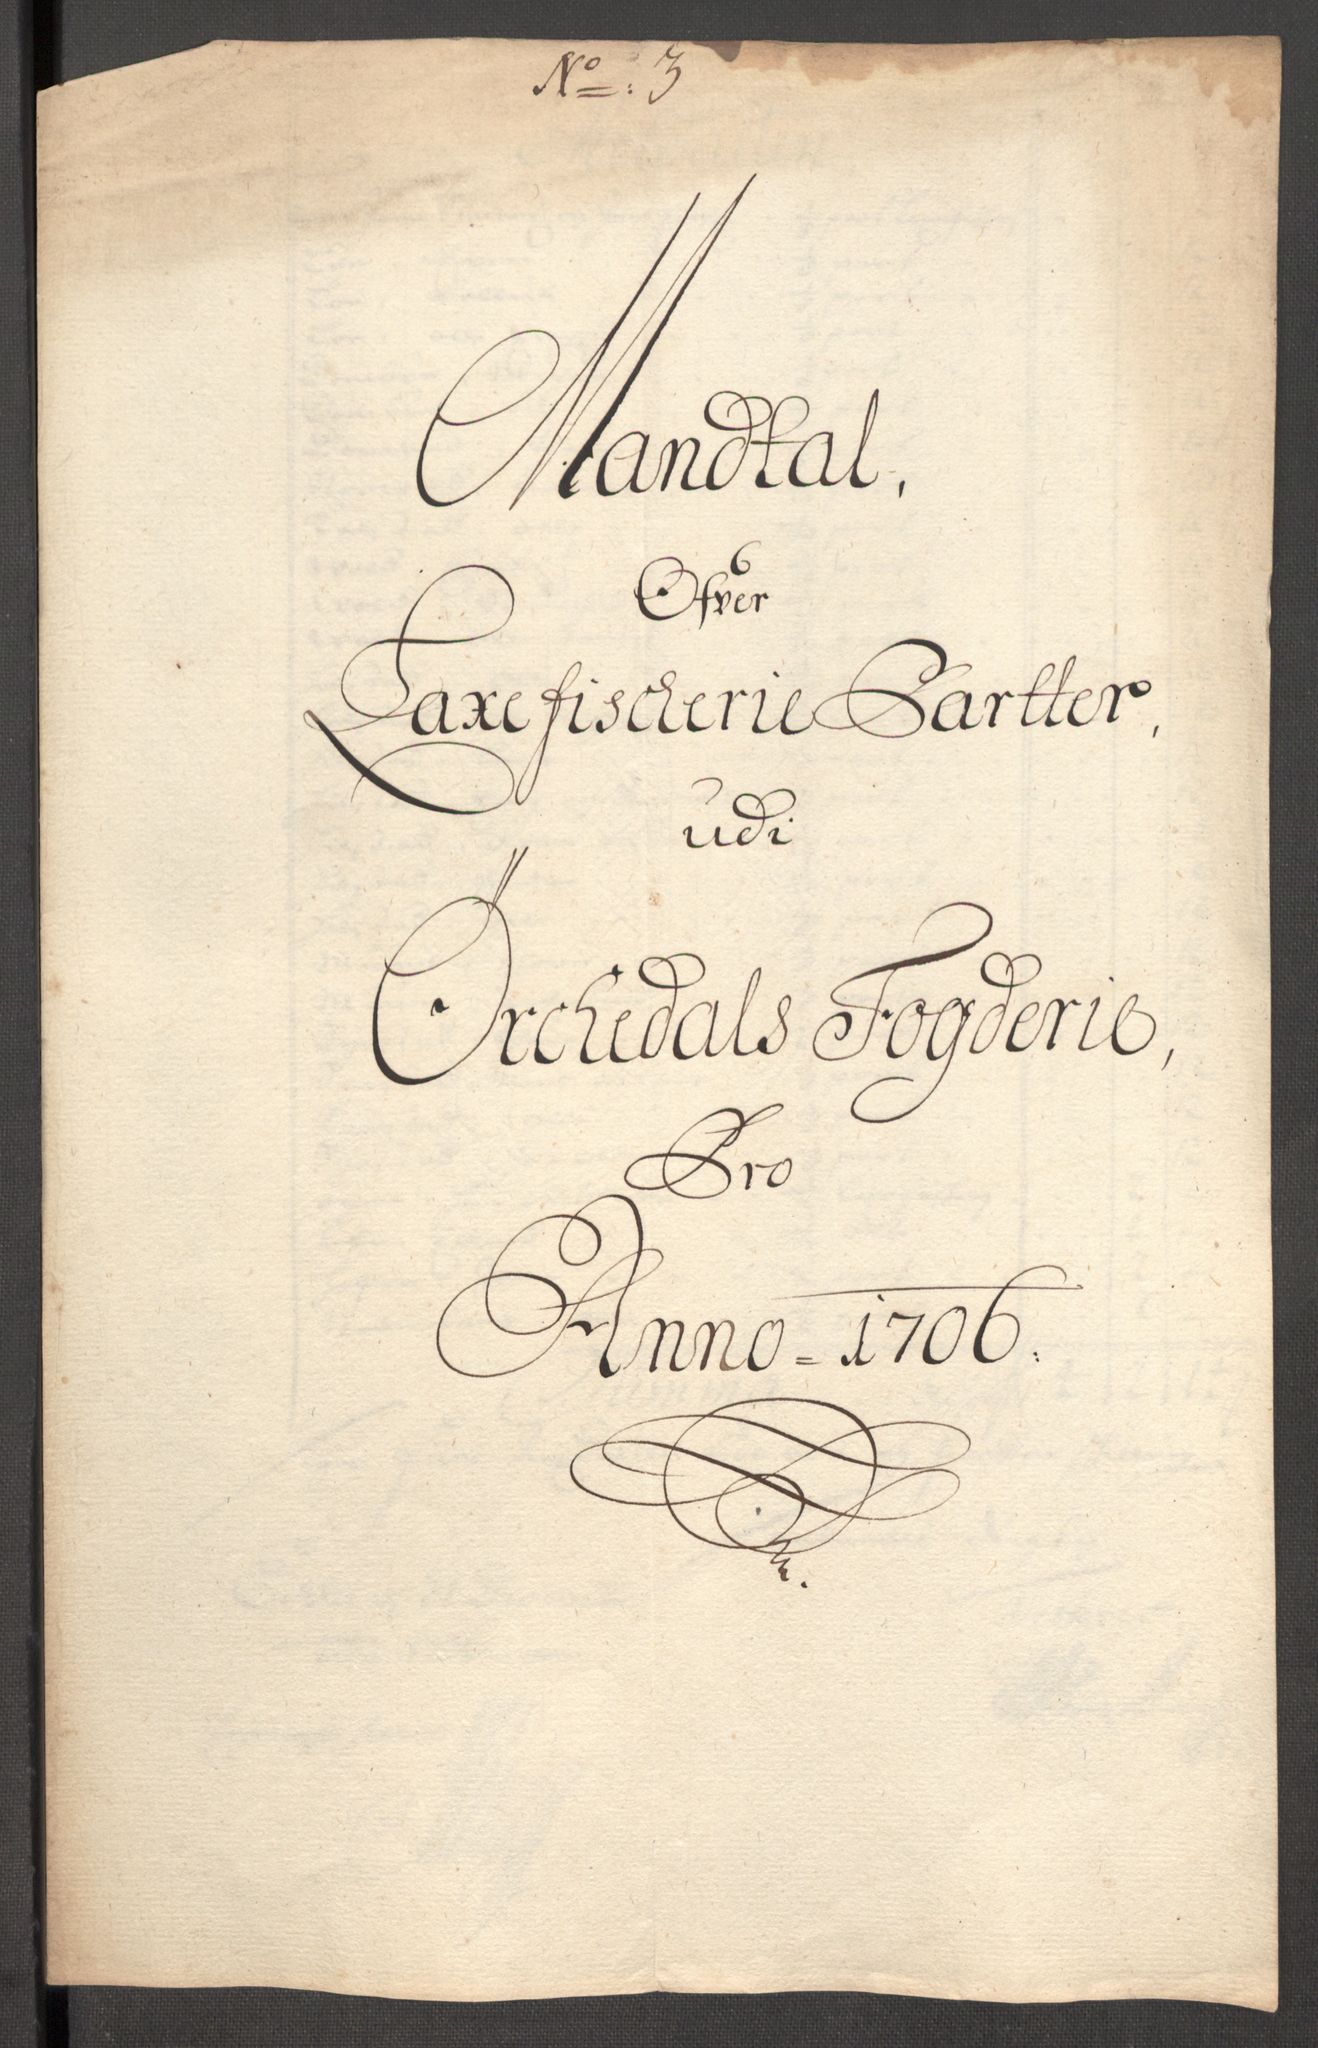 No: 3
Mandtal,
Ofver
Laxefischerie Partter,
udi
Örchedals Fogderie,
Pro
Anno = 1706.